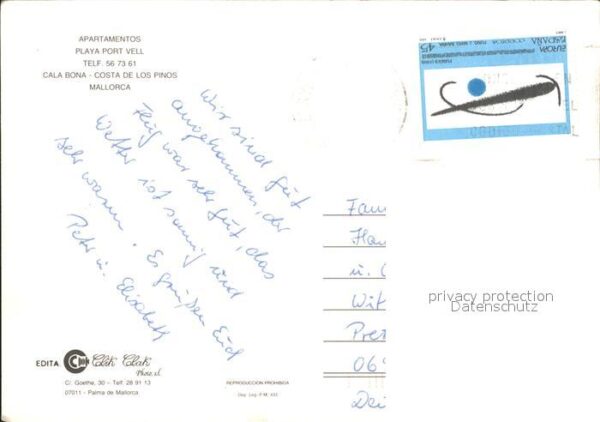 APARTAMENTOS
PLAYA PORT VELL
TELF. 56 73 61
CALA BONA - COSTA DE LOS PINOS
MALLORCA
Wir sind gut
angekommen, der
Flug war sehr gut, das
Wetter ist sonnig und
sehr warm. Es grüßen Euch
Peter u. Elisabeth
EUROPA
ESPAÑA
45
Fam
Han
u. 
Wit
Pre
06
privacy protection
Datenschutz
EDITA Clik Clak
Photo s.l.
C/. Goethe, 30 - Telf: 28 91 13
07011 - Palma de Mallorca
REPRODUCCION PROHIBIDA
Dep. Leg. P.M. 433